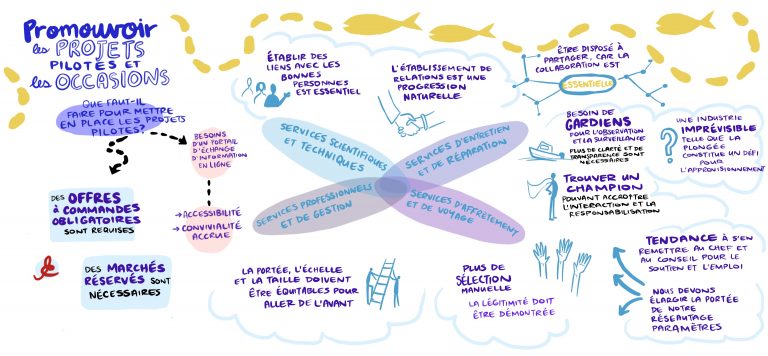 Promouvoir
les PROJETS
PILOTES ET
les OCCASIONS
QUE FAUT-IL
FAIRE POUR METTRE
EN PLACE LES PROJETS
PILOTES?
BESOINS
D'UN PORTAIL
D'ÉCHANGE
D'INFORMATION
EN LIGNE
→ ACCESSIBILITÉ
→ CONVIVIALITÉ
ACCRUE
DES OFFRES
à COMMANDES
OBLIGATOIRES
SONT REQUISES
DES MARCHÉS
RÉSERVÉS SONT
NÉCESSAIRES
ÉTABLIR DES
LIENS AVEC LES
BONNES
PERSONNES
EST ESSENTIEL
L'ÉTABLISSEMENT DE
RELATIONS EST UNE
PROGRESSION
NATURELLE
ÊTRE DISPOSÉ À
PARTAGER, CAR LA
COLLABORATION EST
ESSENTIELLE
SERVICES SCIENTIFIQUES
ET TECHNIQUES
SERVICES D'ENTRETIEN
ET DE RÉPARATION
SERVICES PROFESSIONNELS
ET DE GESTION
SERVICES D'AFFRÈTEMENT
ET DE VOYAGE
BESOIN DE
GARDIENS
POUR L'OBSERVATION
ET LA SURVEILLANCE
PLUS DE CLARTÉ ET DE
TRANSPARENCE SONT
NÉCESSAIRES
UNE INDUSTRIE
IMPRÉVISIBLE
TELLE QUE LA
PLONGÉE
CONSTITUE UN DÉFI
POUR
L'APPROVISIONNEMENT
TROUVER UN
CHAMPION
POUVANT ACCROÎTRE
L'INTERACTION ET LA
RESPONSABILISATION
LA PORTÉE, L'ÉCHELLE
ET LA TAILLE DOIVENT
ÊTRE ÉQUITABLES POUR
ALLER DE L'AVANT
PLUS DE
SÉLECTION
MANUELLE
LA LÉGITIMITÉ DOIT
ÊTRE DÉMONTRÉE
TENDANCE À S'EN
REMETTRE AU CHEF ET
AU CONSEIL POUR LE
SOUTIEN ET L'EMPLOI
NOUS DEVONS
ÉLARGIR LA PORTÉE
DE NOTRE
RÉSEAUTAGE
PARAMÈTRES